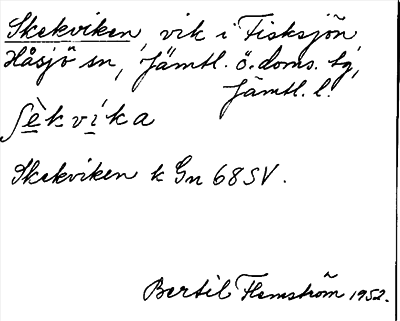 Skekviken, vik i Fisksjön
Håsjö sn, Jämtl. ö. doms. tg,
Jämtl. l.
ʃèkvika
Skekviken k Gn 68 SV.
Bertil Flemström 1952.